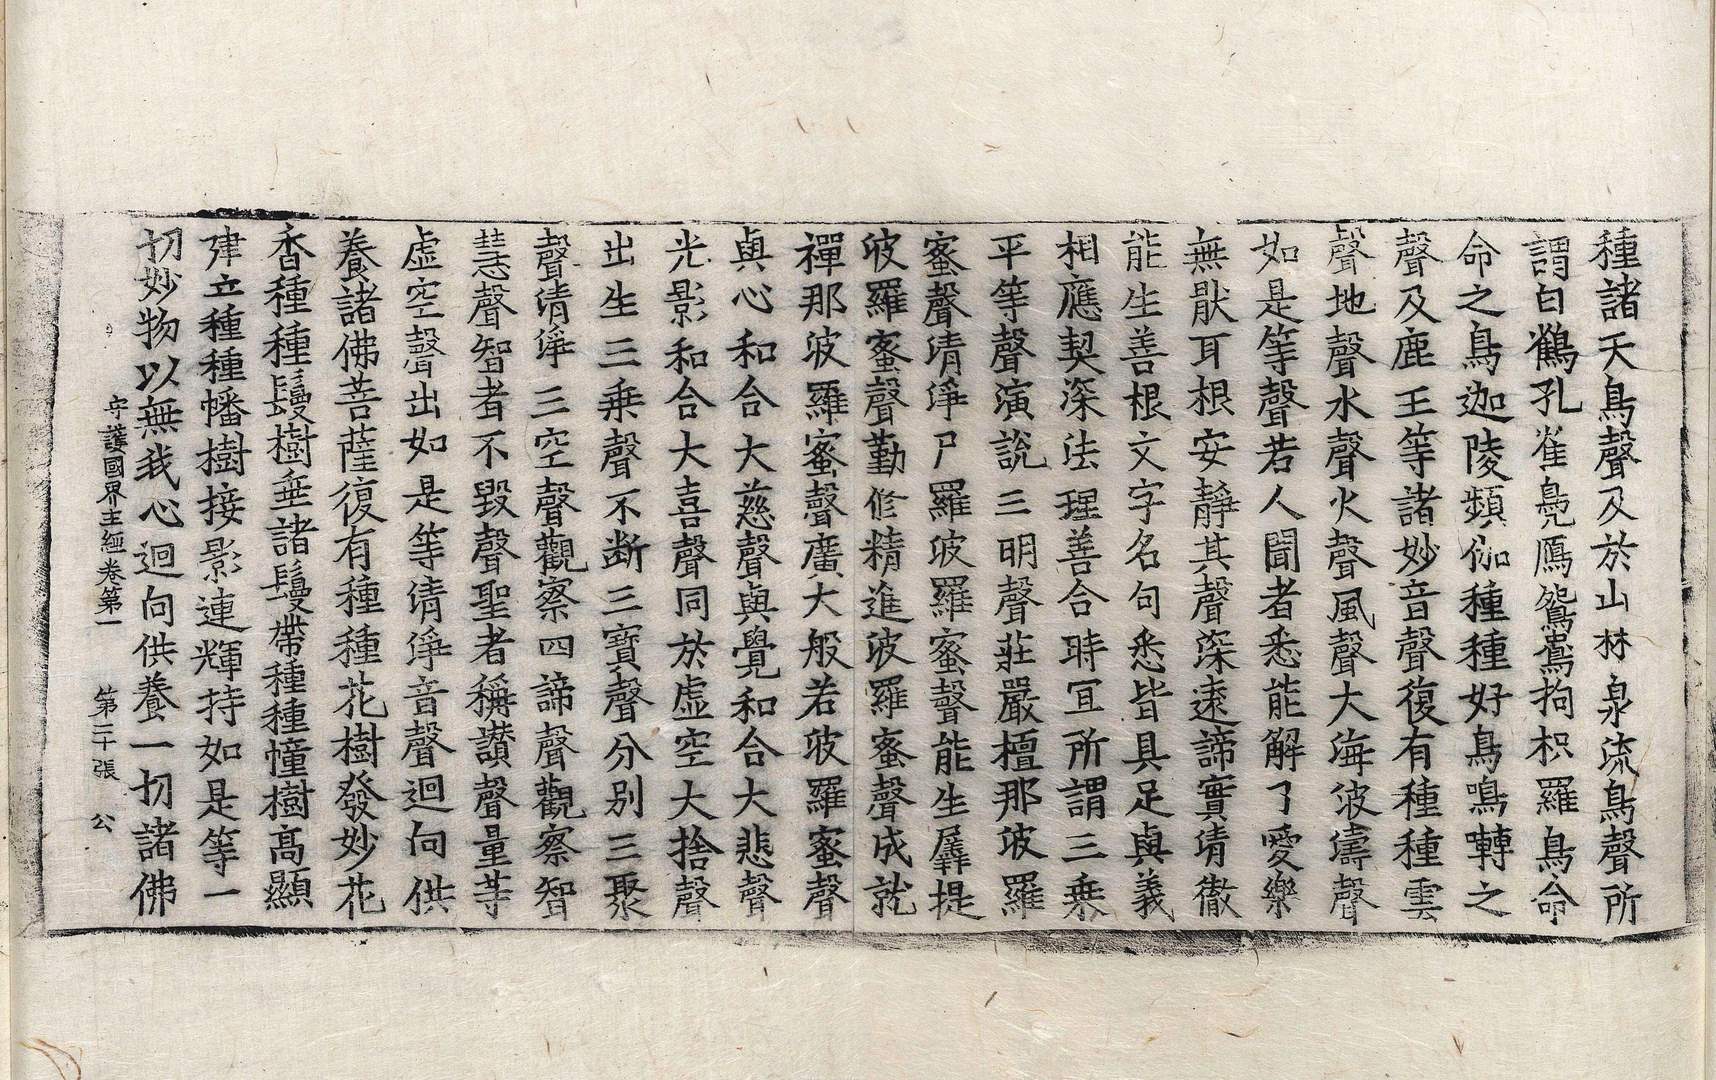 種諸天鳥聲及於山林泉流鳥聲所
謂白鶴孔雀鳧鴈鴛鴦拘枳羅鳥命
命之鳥迦陵頻伽種種好鳥鳴轉之
聲及鹿王等諸妙音聲復有種種雲
聲地聲水聲火聲風聲大海波濤聲
如是等聲若人聞者悉能解了愛樂
無猒耳根安靜其聲深遠諦實清徹
能生善根文字名句悉皆具足與義
相應契深法理善合時宜所謂三乗
平等聲演說三明聲莊嚴檀那波羅
蜜聲清淨尸羅波羅蜜聲能生羼提
波羅蜜聲勤修精進波羅蜜聲成就
禪那波羅蜜聲廣大般若波羅蜜聲
與心和合大慈聲與覺和合大悲聲
光影和合大喜聲同於虛空大捨聲
出生三乗聲不断三寶聲分別三聚
聲清淨三空聲觀察四諦聲觀察智
慧聲智者不毀聲聖者稱讃聲量等
虛空聲出如是等清淨音聲迴向供
養諸佛菩薩復有種種花樹發妙花
香種種鬘樹垂諸鬘帶種種幢樹高顯
建立種種幡樹接影連輝持如是等一
切妙物以無我心迴向供養一切諸佛
守護國界主經卷第一 第二十張 公